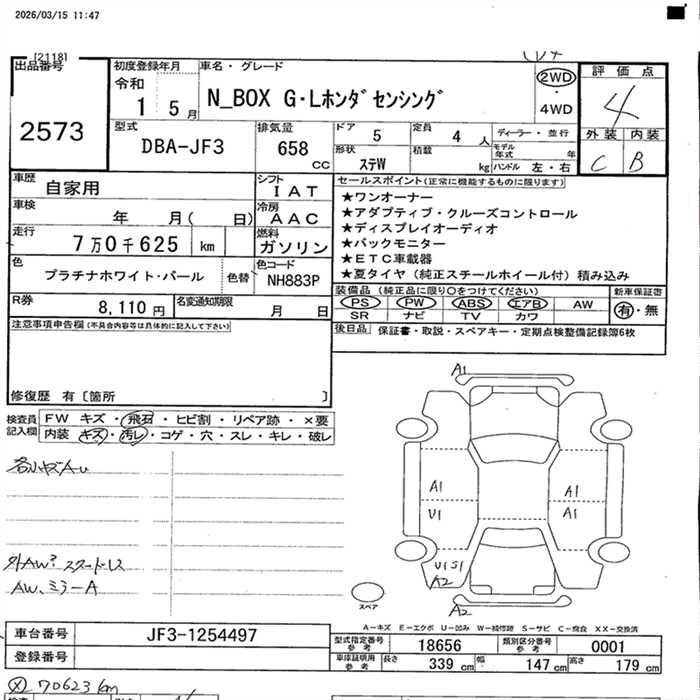 2026/03/15 11:47
[2118]
出品番号
2573
初度登録年月
令和
1 5月
車名・グレード
N_BOX G・Lホンダセンシング
2WD
・
4WD
評価点
4
外装 内装
C B
型式
DBA-JF3
排気量
658
CC
ドア 5
定員 4 人
形状 ステW
積載 kg
ディーラー・並行
モデル年式 年
ハンドル 左・右
車歴
自家用
シフト
IAT
車検
年 月( 日)
冷房
AAC
走行
7万0千625 km
燃料
ガソリン
色
プラチナホワイト・パール
色替
色コード
NH883P
R券
8,110円
名変通知期限
月 日
セールスポイント(正常に機能するものに限ります)
★ワンオーナー
★アダプティブ・クルーズコントロール
★ディスプレイオーディオ
★バックモニター
★ETC車載器
★夏タイヤ(純正スチールホイール付)積み込み
装備品(純正品に限り○をつけてください)
PS PW ABS エアB AW
SR ナビ TV カワ
新車保証書
有・無
後日品 保証書・取説・スペアキー・定期点検整備記録簿6枚
注意事項申告欄(不具合内容等は具体的に記入して下さい)
修復歴 有〔箇所 〕
検査員
記入欄
FW キズ・飛石・ヒビ割・リペア跡・×要
内装 キズ・汚レ・コゲ・穴・スレ・キレ・破レ
外AW?スタートレス
AW、ミラーA
A1
A1
U1
A1
A1
U1S1
A2
A2
スペア
A-キズ E-エクボ U-凹み W-補修跡 S-サビ C-腐食 XX-交換済
車台番号 JF3-1254497
登録番号
型式指定番号
参考
18656
類別区分番号
参考
0001
車庫証明用
参考
長さ 339 cm 幅 147 cm 高さ 179 cm
70623km